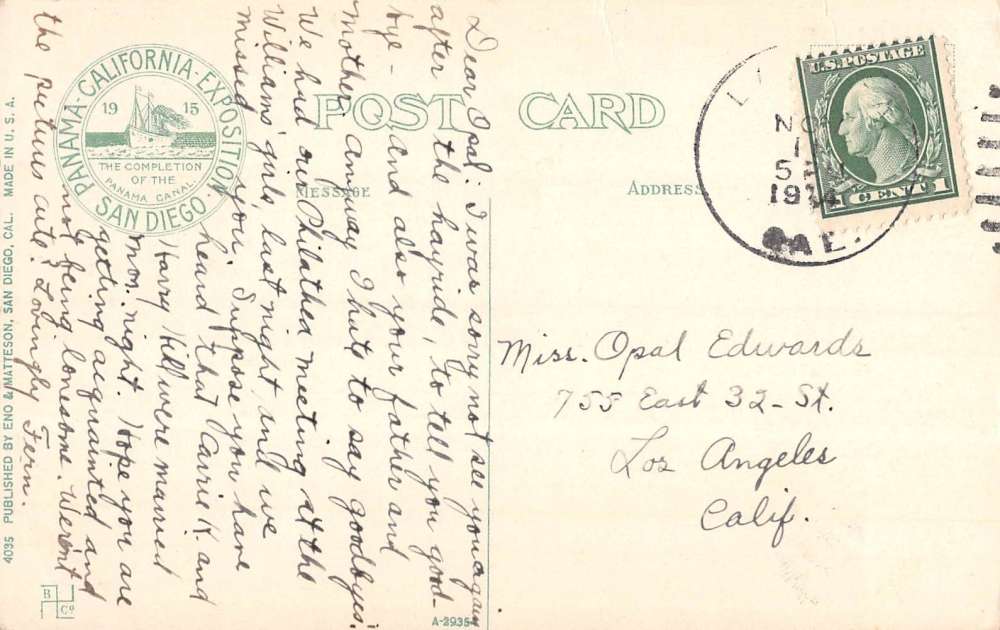 PANAMA-CALIFORNIA-EXPOSITION
1915
THE COMPLETION
OF THE
PANAMA CANAL
SAN DIEGO
POST CARD
MESSAGE
ADDRESS
U.S. POSTAGE
1 CENT 1
NO
1
5
191
CAL.
Dear Opal: I was sorry not see you again
after the hayride, to tell you good-
bye - and also your father and
mother, anyway I hate to say goodbyes.
We had our Philathea meeting at the
Williams' girls, last night, and we
missed you. Suppose you have
heard that Carrie K. and
Harry Hill were married
Mon. night. Hope you are
getting acquainted and
not being lonesome. Weren't
the pictures cute? Lovingly Fern.
Miss. Opal Edwards
755 East 32-St.
Los Angeles
Calif.
4035 PUBLISHED BY ENO & MATTESON, SAN DIEGO, CAL. MADE IN U.S.A.
B
Co
A-2935